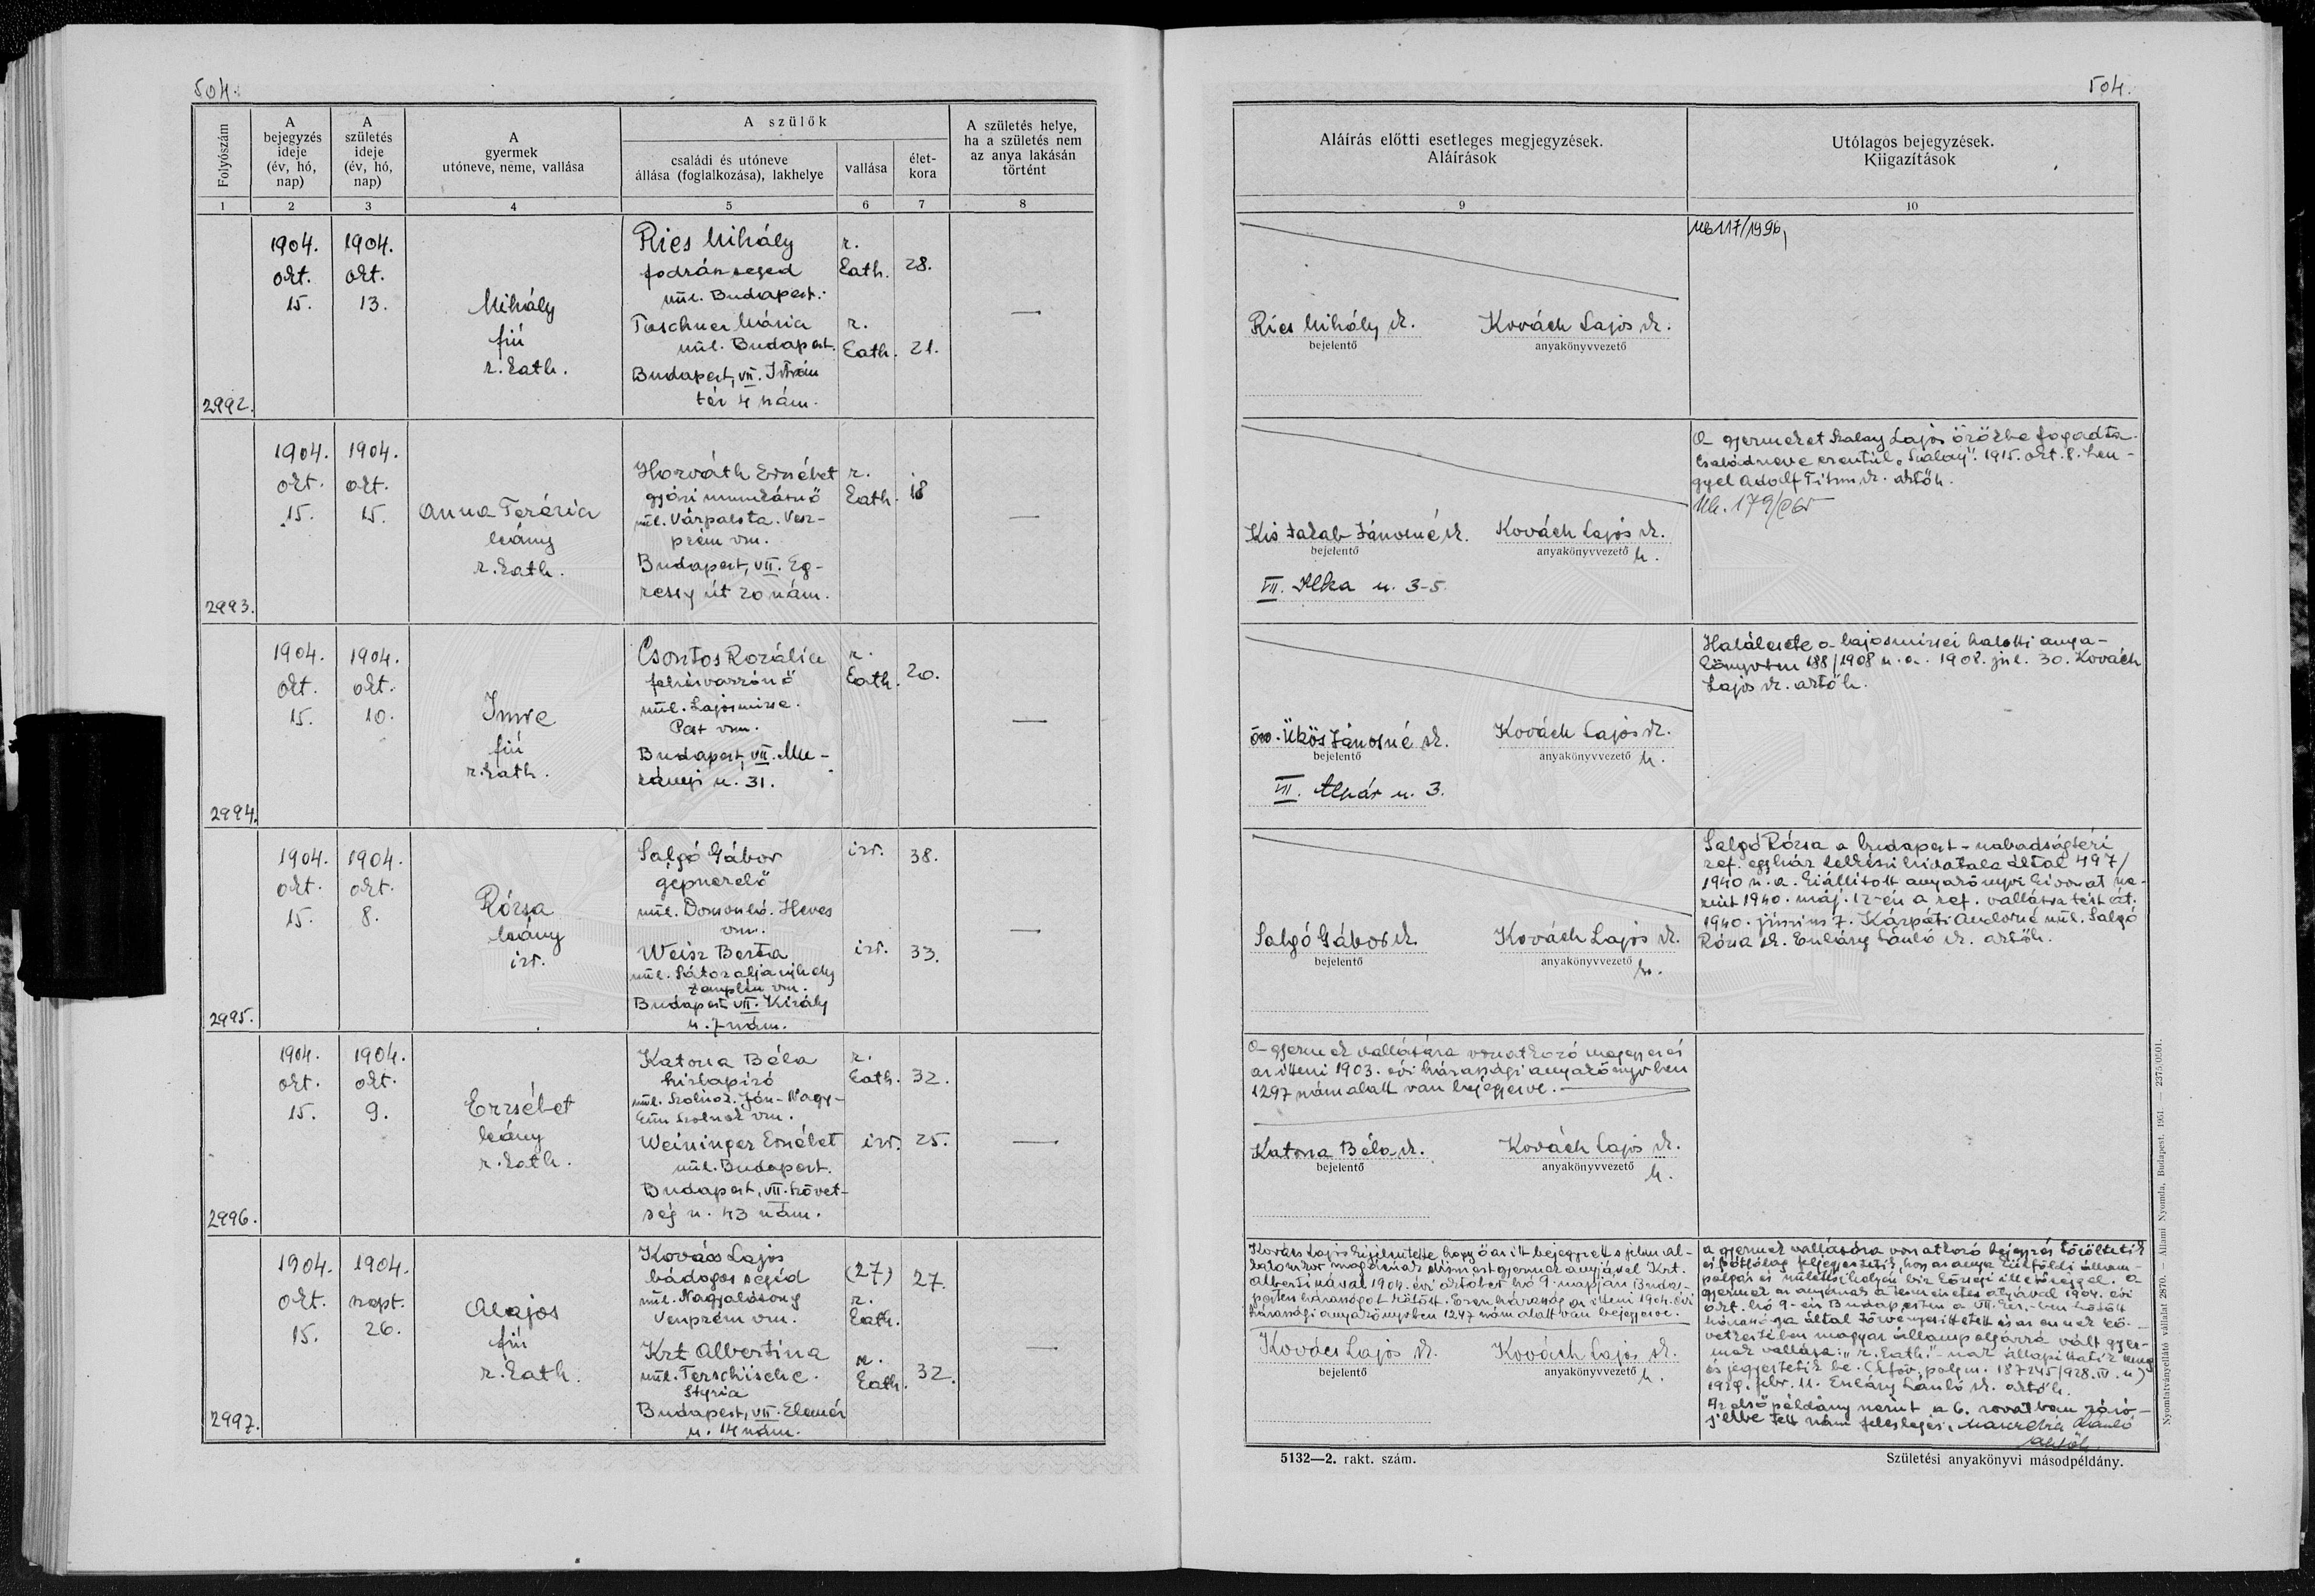 504.
Folyószám
A bejegyzés ideje (év, hó, nap)
A születés ideje (év, hó, nap)
A gyermek utóneve, neme, vallása
A szülők
családi és utóneve állása (foglalkozása), lakhelye
vallása
élet-kora
A születés helye, ha a születés nem az anya lakásán történt
1 2 3 4 5 6 7 8
2992.
1904. okt. 15.
1904. okt. 13.
Mihály
fiú
r. kath.
Ries Mihály
fodrászsegéd
szül. Budapest.
r. kath. 28.
Taschner Mária
szül. Budapest.
r. kath. 21.
Budapest, VII. István
tér 4 szám.
—
2993.
1904. okt. 15.
1904. okt. 15.
Anna Terézia
leány
r. kath.
Horváth Erzsébet
gyári munkásnő
szül. Várpalota. Vesz-
prém vm.
Budapest, VII. Eg-
ressy út 20 szám.
r. kath. 18
—
2994.
1904. okt. 15.
1904. okt. 10.
Imre
fiú
r. kath.
Csontos Rozália
fehérvarrónő
szül. Lajosmizse.
Pest vm.
Budapest, VII. Mu-
rányi u. 31.
r. kath. 20.
—
2995.
1904. okt. 15.
1904. okt. 8.
Rózsa
leány
izr.
Salgó Gábor
gépszerelő
szül. Domoszló. Heves
vm.
izr. 38.
Weisz Berta
szül. Sátoraljaújhely
Zemplén vm.
izr. 33.
Budapest, VII. Király
u. 7 szám.
—
2996.
1904. okt. 15.
1904. okt. 9.
Erzsébet
leány
r. kath.
Katona Béla
hirlapiró
szül. Szolnok. Jász-Nagy-
kun Szolnok vm.
r. kath. 32.
Weininger Erzsébet
szül. Budapest.
izr. 25.
Budapest, VII. Szövet-
ség u. 43 szám.
—
2997.
1904. okt. 15.
1904. szept. 26.
Alajos
fiú
r. kath.
Kovács Lajos
bádogos segéd
szül. Nagyalásony
Veszprém vm.
(27) r. kath. 27.
Krt Albertina
szül. Terschische.
Styria
r. kath. 32.
Budapest, VII. Elemér
u. 14 szám.
—
504.
Aláírás előtti esetleges megjegyzések.
Aláírások
Utólagos bejegyzések.
Kiigazítások
9 10
117/1996
Ries Mihály sk. Kovách Lajos sk.
bejelentő anyakönyvvezető
A gyermeket Szalay Lajos örökbe fogadta.
Családneve ezentúl "Szalay". 1915. okt. 8. Len-
gyel Adolf sk. aktőh.
Kis Jakab Jánosné sk. Kovách Lajos sk.
bejelentő anyakönyvvezető h.
VII. Ilka u. 3-5.
Halálesete a lajosmizsei halotti anya-
könyvben 188/1908 sz. a. 1908. jul. 30. Kovách
Lajos sk. aktőh.
özv. Ükös Jánosné sk. Kovách Lajos sk.
bejelentő anyakönyvvezető h.
VII. Alpár u. 3.
Salgó Rózsa a budapest-szabadságtéri
ref. egyház lelkészi hivatala által 497/
1940 sz. a. kiállított anyakönyvi kivonat sze-
rint 1940. máj. 12-én a ref. vallásra tért át.
1940. június 7. Kárpáti Andorné szül. Salgó
Rózsa sk. László sk. aktőh.
Salgó Gábor sk. Kovách Lajos sk.
bejelentő anyakönyvvezető h.
A gyermek vallására vonatkozó megegyezés
az itteni 1903. évi házassági anyakönyvben
1297 szám alatt van bejegyezve.
Katona Béla sk. Kovách Lajos sk.
bejelentő anyakönyvvezető h.
Kovács Lajos kijelentette, hogy ő az itt bejegyzett s jelen al-
kalomkor magáénak elismert gyermek anyjával Krt.
Albertinával 1904. évi október hó 9 napján Buda-
pesten házasságot kötött. Ezen házasság az itteni 1904. évi
házassági anyakönyvben 1247 szám alatt van bejegyezve.
Kovács Lajos sk. Kovách Lajos sk.
bejelentő anyakönyvvezető h.
A gyermek vallására vonatkozó bejegyzés töröltetik
és pótlólag feljegyeztetik, hogy az anya külföldi állam-
polgár és születési helyén bir községi illetőséggel. A
gyermek az anyának a természetes atyával 1904. évi
okt. hó 9-én Budapesten a VII. ker.-ben kötött
házassága által törvényesittetett és az ennek kö-
vetkeztében magyar állampolgárrá vált gyer-
mek vallása: "r. kath."-nak állapittatik meg
és jegyeztetik be. (Sfőv. polgm. 187245/928. IV. sz)
1929. febr. 11. László sk. aktőh.
Az első példány szerint a 6. rovatban záró-
jelbe tett szám felesleges. László
aktőh.
5132—2. rakt. szám.
Születési anyakönyvi másodpéldány.
Nyomtatványellátó vállalat 2870. — Állami Nyomda, Budapest. 1951. — 2375/0501.